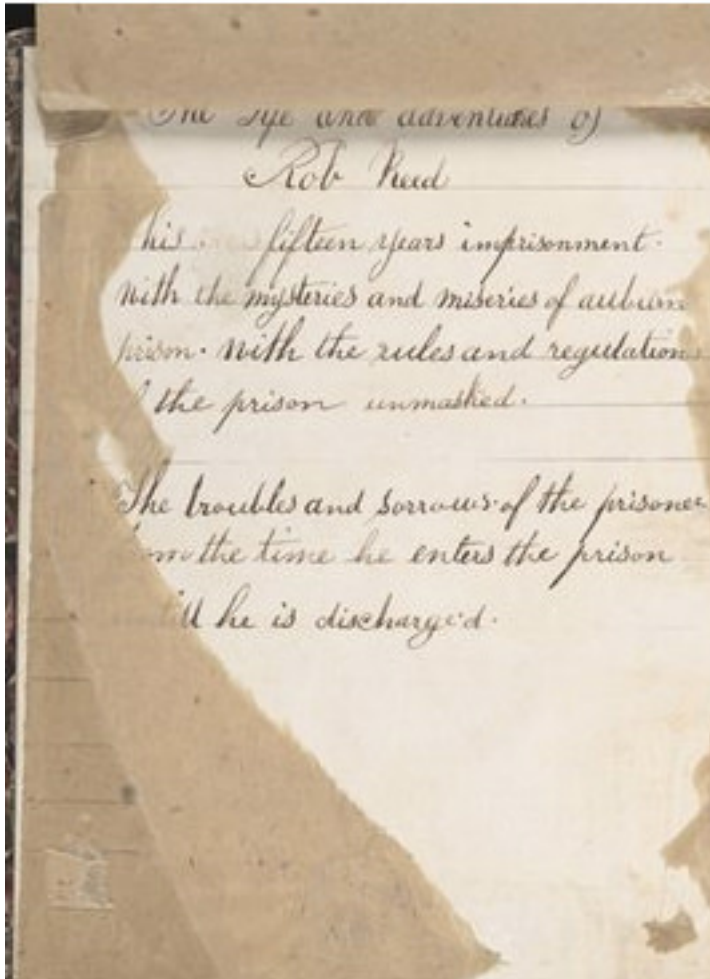 The Life and adventures of
Rob Reed
his fifteen years imprisonment.
With the mysteries and miseries of auburn
prison. With the rules and regulations
the prison unmasked.
The troubles and sorrows of the prisoner
from the time he enters the prison
till he is discharged.